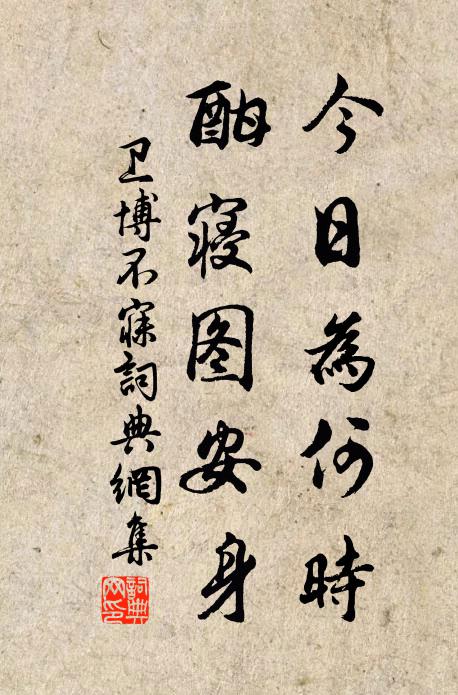 今日為何時
酣寝图安身
卫博不寐詞典網集
詞典網印